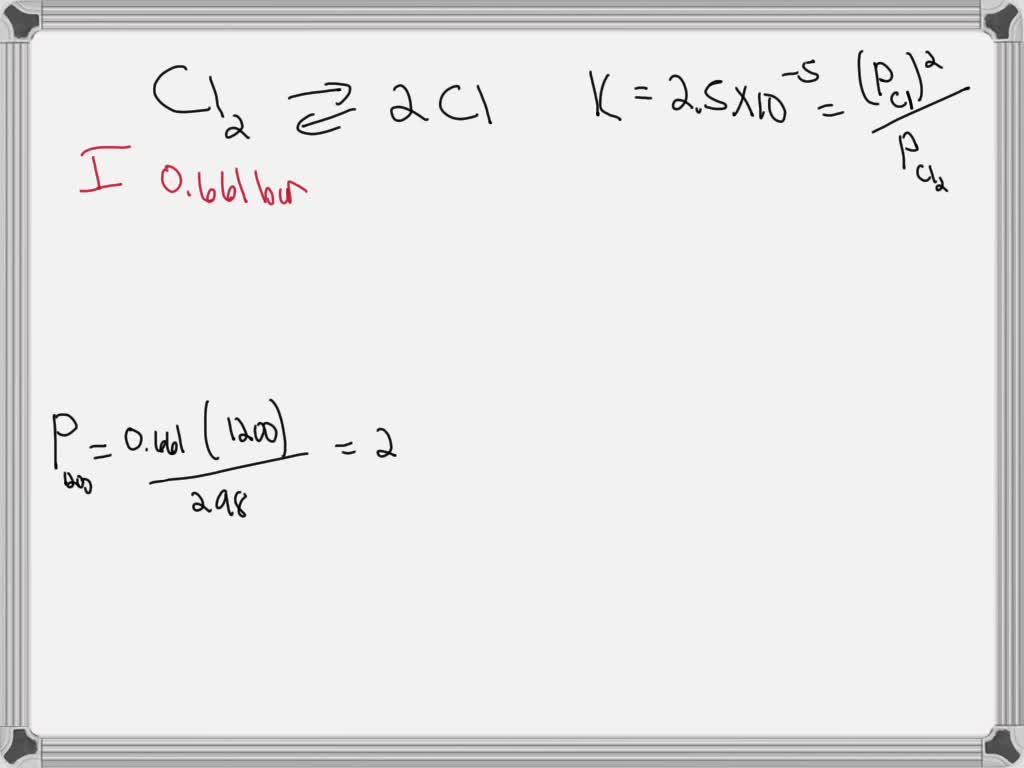 Cl₂ ⇌ 2Cl K = 2.5×10⁻⁵ = (P_Cl)² / P_Cl₂
I 0.661 bar
P₁₂₀₀ = 0.661 (1200) / 298 = 2